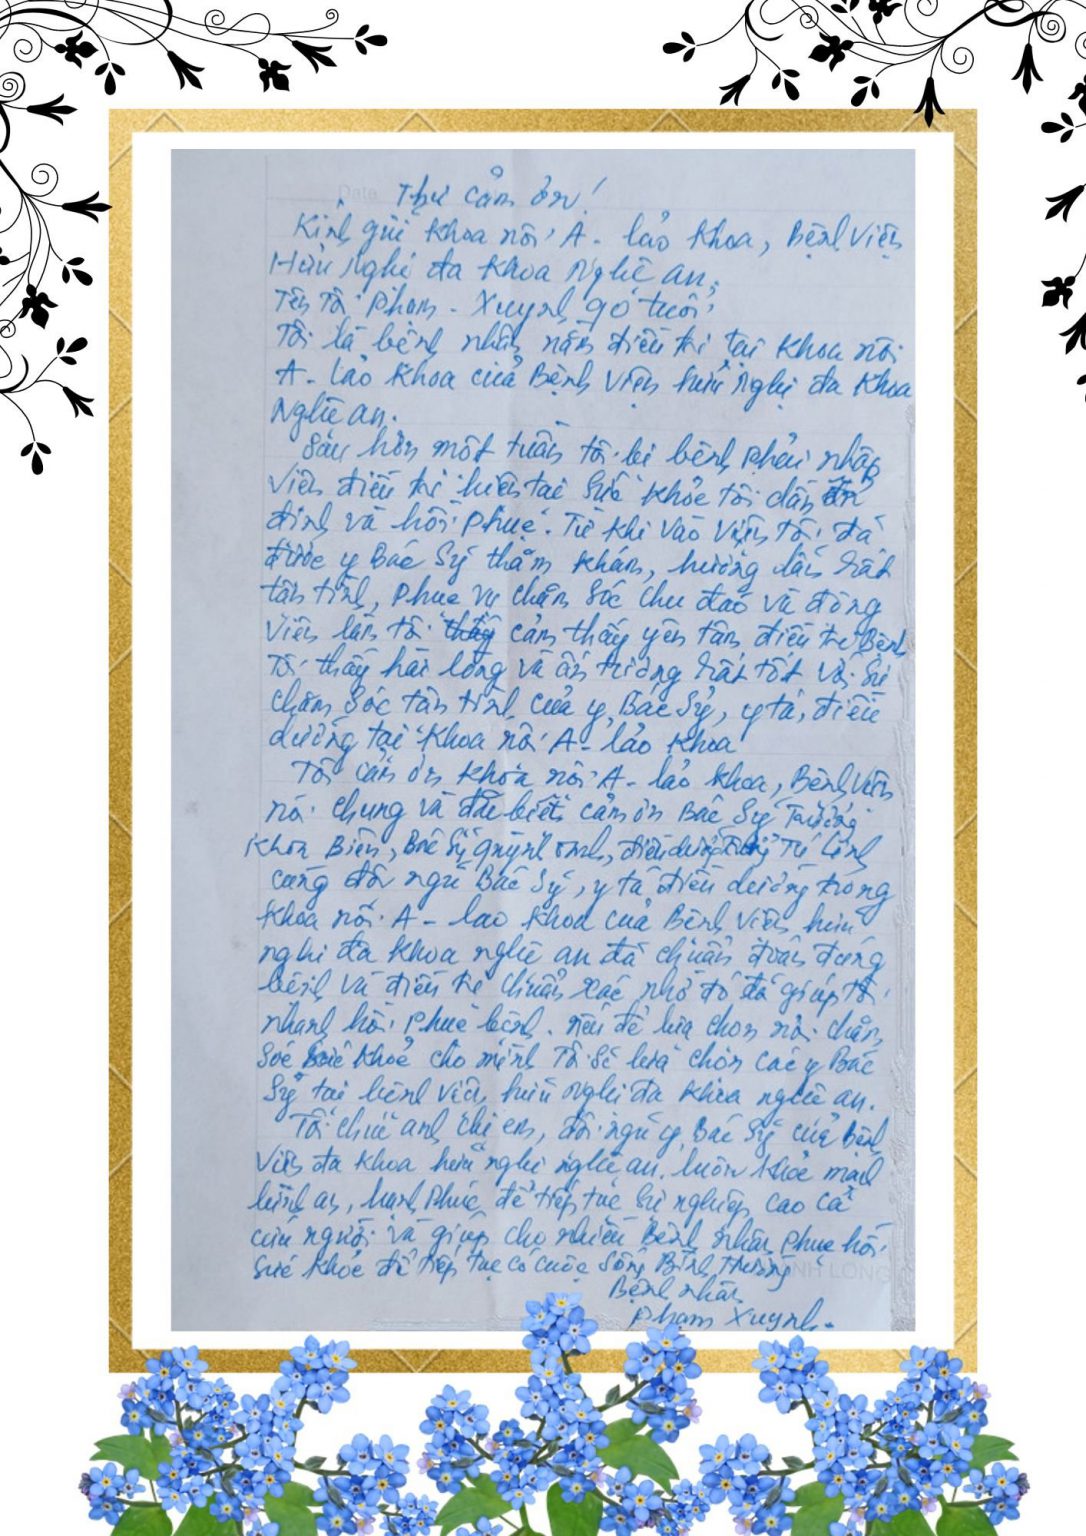 Thư cảm ơn!
Kính gửi khoa nội A - lảo khoa, Bệnh Viện
Hữu Nghị đa khoa Nghệ an,
Tên Tôi: Phạm - Xuynh 90 tuổi,
Tôi là bệnh nhân nằm điều trị tại khoa nội
A - lảo khoa của Bệnh Viện hữu Nghị đa khoa
Nghệ an.
Sau hơn một tuần tôi bị bệnh phải nhập
Viện điều trị hiện tại sức khỏe tôi dần ổn
định và hồi phục. Từ khi vào viện tôi đã
được y Bác Sỹ thăm khám, hướng dẫn rất
tận tình, phục vụ chăm sóc chu đáo và động
viên làm tôi cảm thấy yên tâm điều trị Bệnh
Tôi thấy hài lòng và ấn tượng rất tốt với sự
chăm sóc tận tình của y, Bác Sỹ, y tá, điều
dưỡng tại khoa nội A - lảo khoa
Tôi cảm ơn khoa nội A - lảo khoa, Bệnh Viện
nói chung và đặc biệt cảm ơn Bác Sỹ Trưởng
khoa Biên, Bác Sỹ Quỳnh Anh, điều dưỡng Tú Linh
cùng đội ngũ Bác Sỹ, y tá điều dưỡng trong
khoa nội A - lao khoa của Bệnh viện hữu
nghị đa khoa nghệ an đã chuẩn đoán đúng
bệnh và điều trị chuẩn xác nhờ đó đã giúp tôi
nhanh hồi phục bệnh. nếu để lựa chọn nơi chăm
sóc sức khỏe cho mình Tôi sẽ lựa chọn các y Bác
Sỹ tại bệnh viện hữu nghị đa khoa nghệ an.
Tôi chúc anh chị em, đội ngũ y, Bác Sỹ của Bệnh
Viện đa khoa hữu nghị nghệ an. luôn khỏe mạnh
bình an, hạnh phúc để tiếp tục sự nghiệp cao cả
cứu người và giúp cho nhiều Bệnh nhân phục hồi
sức khỏe để tiếp tục có cuộc sống Bình thường
Bệnh nhân
Phạm Xuynh.